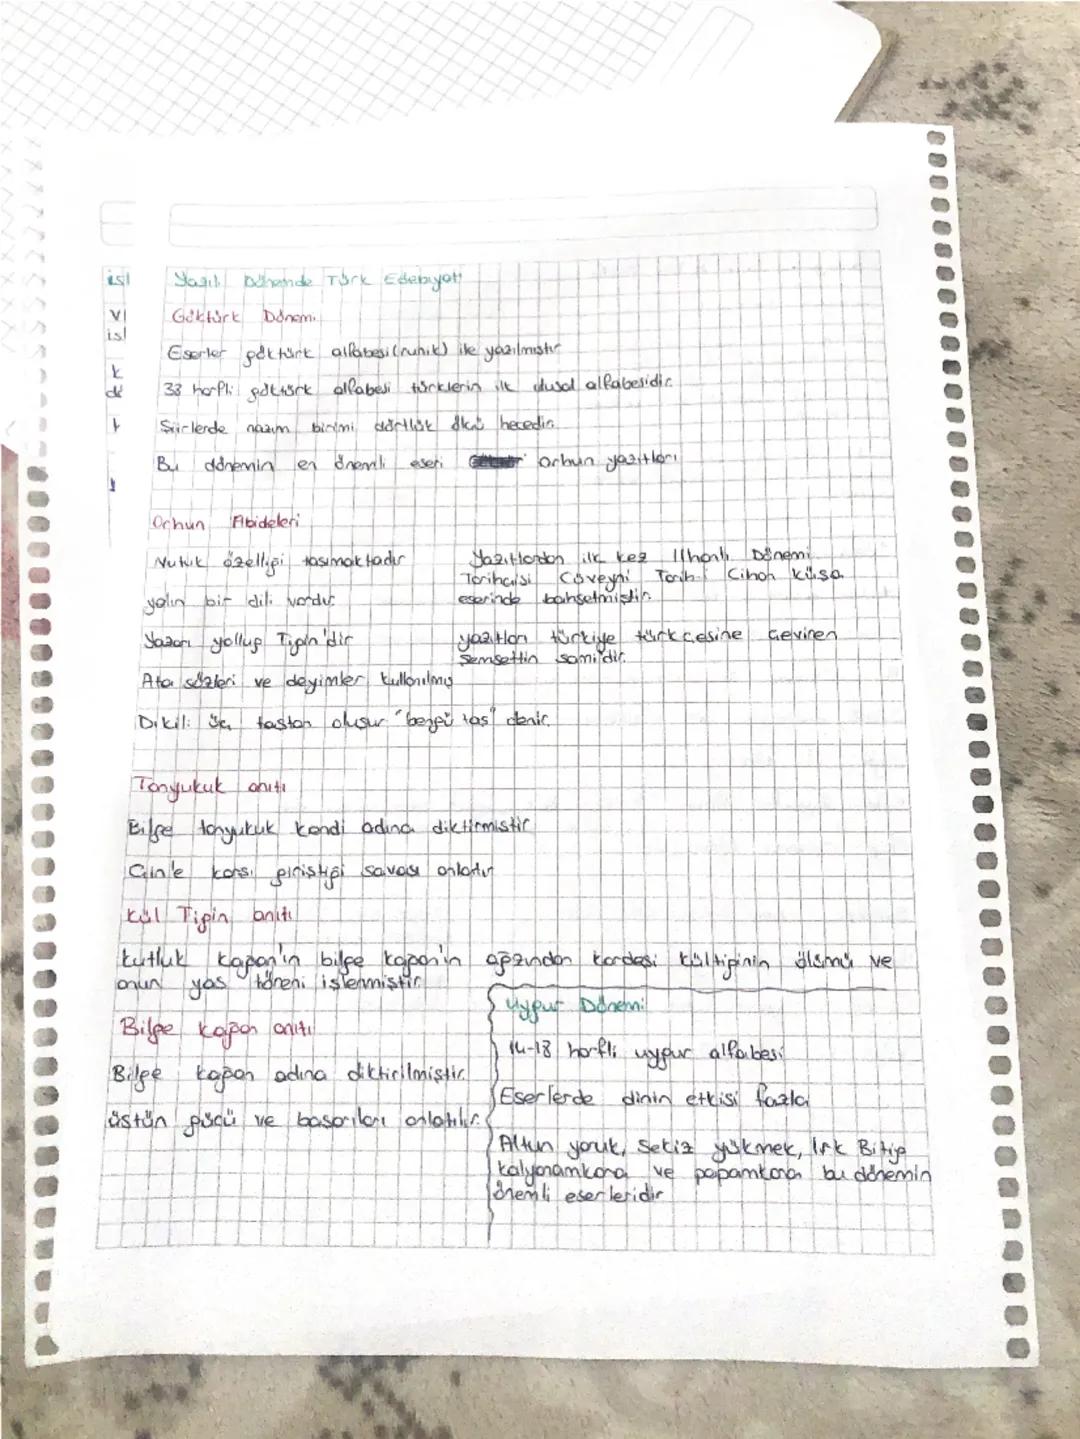 Yazılı Dönemde Türk Edebiyatı
Göktürk Dönemi
Eserler göktürk alfabesi (runik) ile yazılmıştır
38 harfli göktürk alfabesi türklerin ilk ulusal alfabesidir.
Şiirlerde nazım birimi dörtlük ölçü hecedir.
Bu dönemin en önemli eseri orhun yazıtları
Orhun Abideleri
Nutuk özelliği taşımaktadır
yalın bir dili vardır.
Yazarı yollug Tigin'dir
Ata sözleri ve deyimler kullanılmış
Dikili üç taştan oluşur "bengü taş" denir.
Yazıtlardan ilk kez İlhanlı Dönemi
Tarihçisi Cüveyni Tarih-i Cihan Küşa
eserinde bahsetmiştir.
yazıtları türkiye türkçesine çeviren
Şemsettin sami'dir.
Tonyukuk anıtı
Bilge tonyukuk kendi adına diktirmiştir
Çin'e karşı giriştiği savaşı anlatır
Kül Tigin anıtı
kutluk kağan'ın bilge kağan'ın ağzından kardeşi kültiginin ölümü ve
onun yas töreni işlenmiştir.
Bilge kağan anıtı
Bilge kağan adına diktirilmiştir.
üstün gücü ve başarıları anlatılır.
Uygur Dönemi
14-18 harfli uygur alfabesi
Eserlerde dinin etkisi fazla
Altun yaruk, Sekiz yükmek, Irk Bitig
kalyanamkara ve papamkara bu dönemin
önemli eserleridir